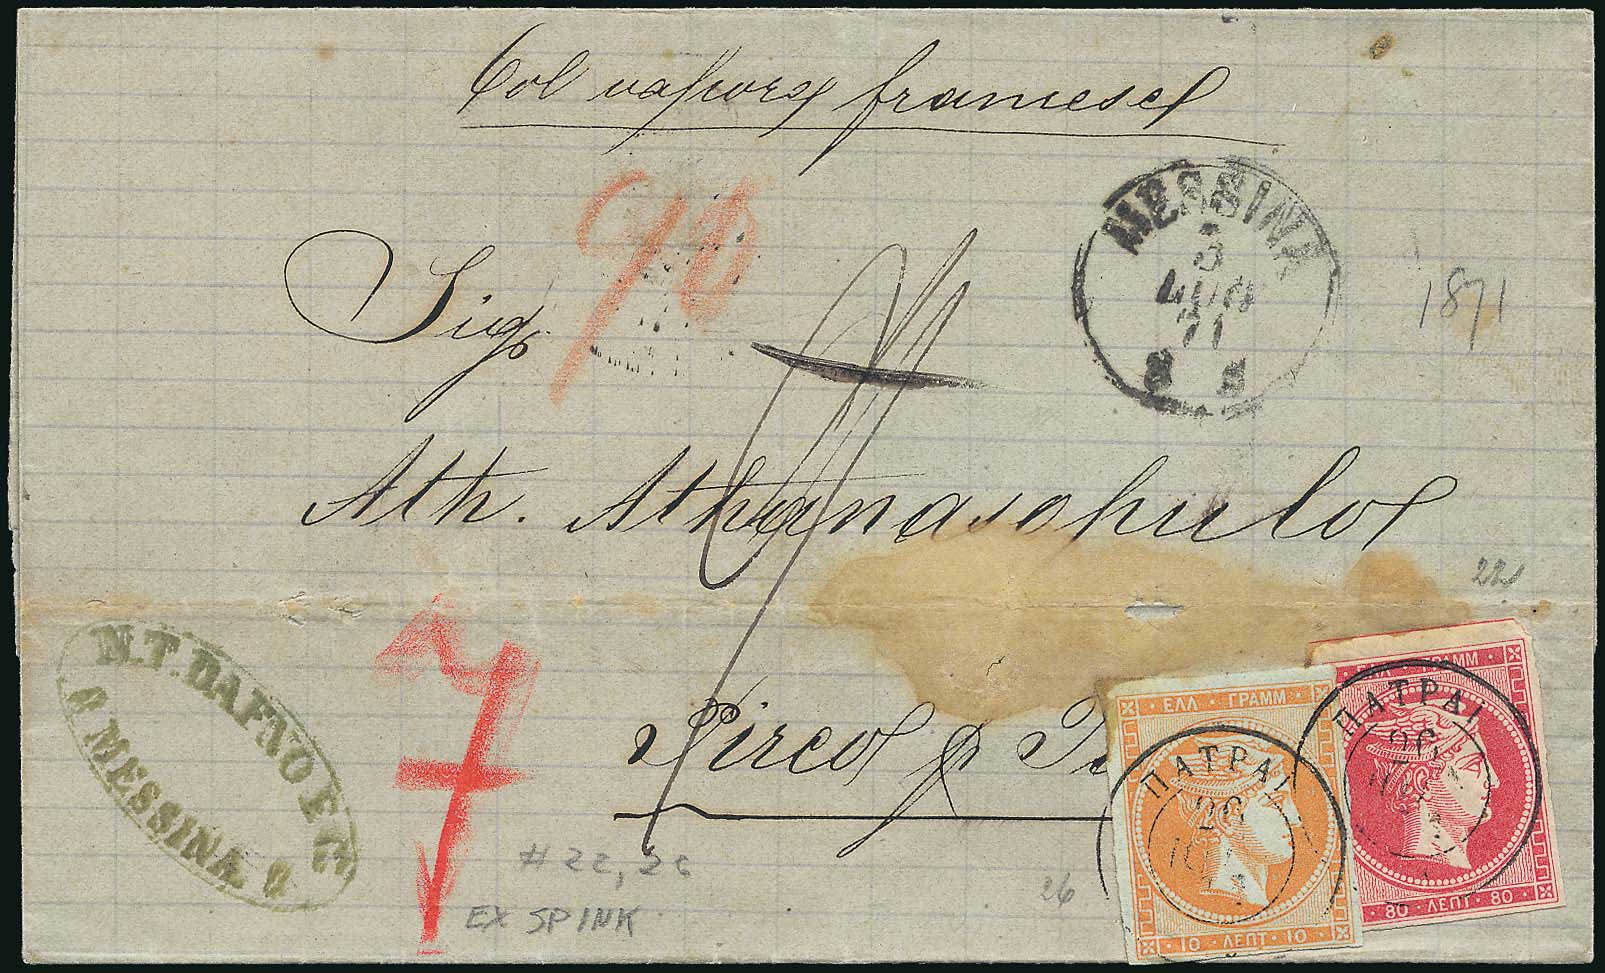 Col vapore francese
90
MESSINA
3
LUG
71
1871
Sigr
Ath. Athanasopulos
22
7
N. T. DAFNO E Cº
MESSINA
Pirco p
# 22, 26
EX SPINK
26
ΕΛΛ ΓΡΑΜΜ
ΠΑΤΡΑΙ
26
10 ΛΕΠΤ 10
ΕΛΛ ΓΡΑΜΜ
ΠΑΤΡΑΙ
26
80 ΛΕΠΤ 80